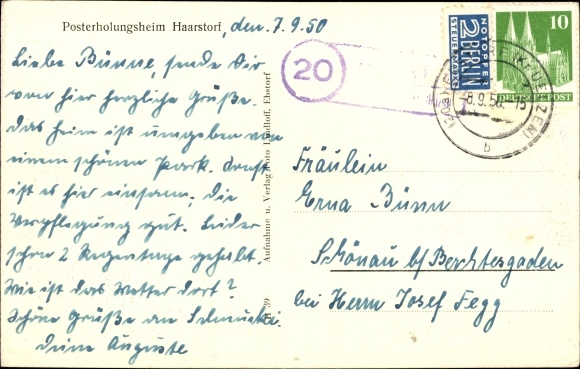 Posterholungsheim Haarstorf, den. 7.9.50
Liebe Bünne, sende Dir
von hier herzliche Grüße.
Das Heim ist umgeben von
einem schönen Park. Sonst
ist es hier einsam, die
Verpflegung gut. Leider
schon 2 Regentage gehabt.
Wie ist das Wetter dort?
Schöne Grüße an
Deine Auguste
Aufnahme u. Verlag: Foto Ebstorf
39
20
NOTOPFER
2 BERLIN
STEUERMARKE
10
DEUTSCHE POST
8.9.50
b
Fräulein
Erna Bünn
Schönau b/ Berchtesgaden
bei Herrn Josef Fegg